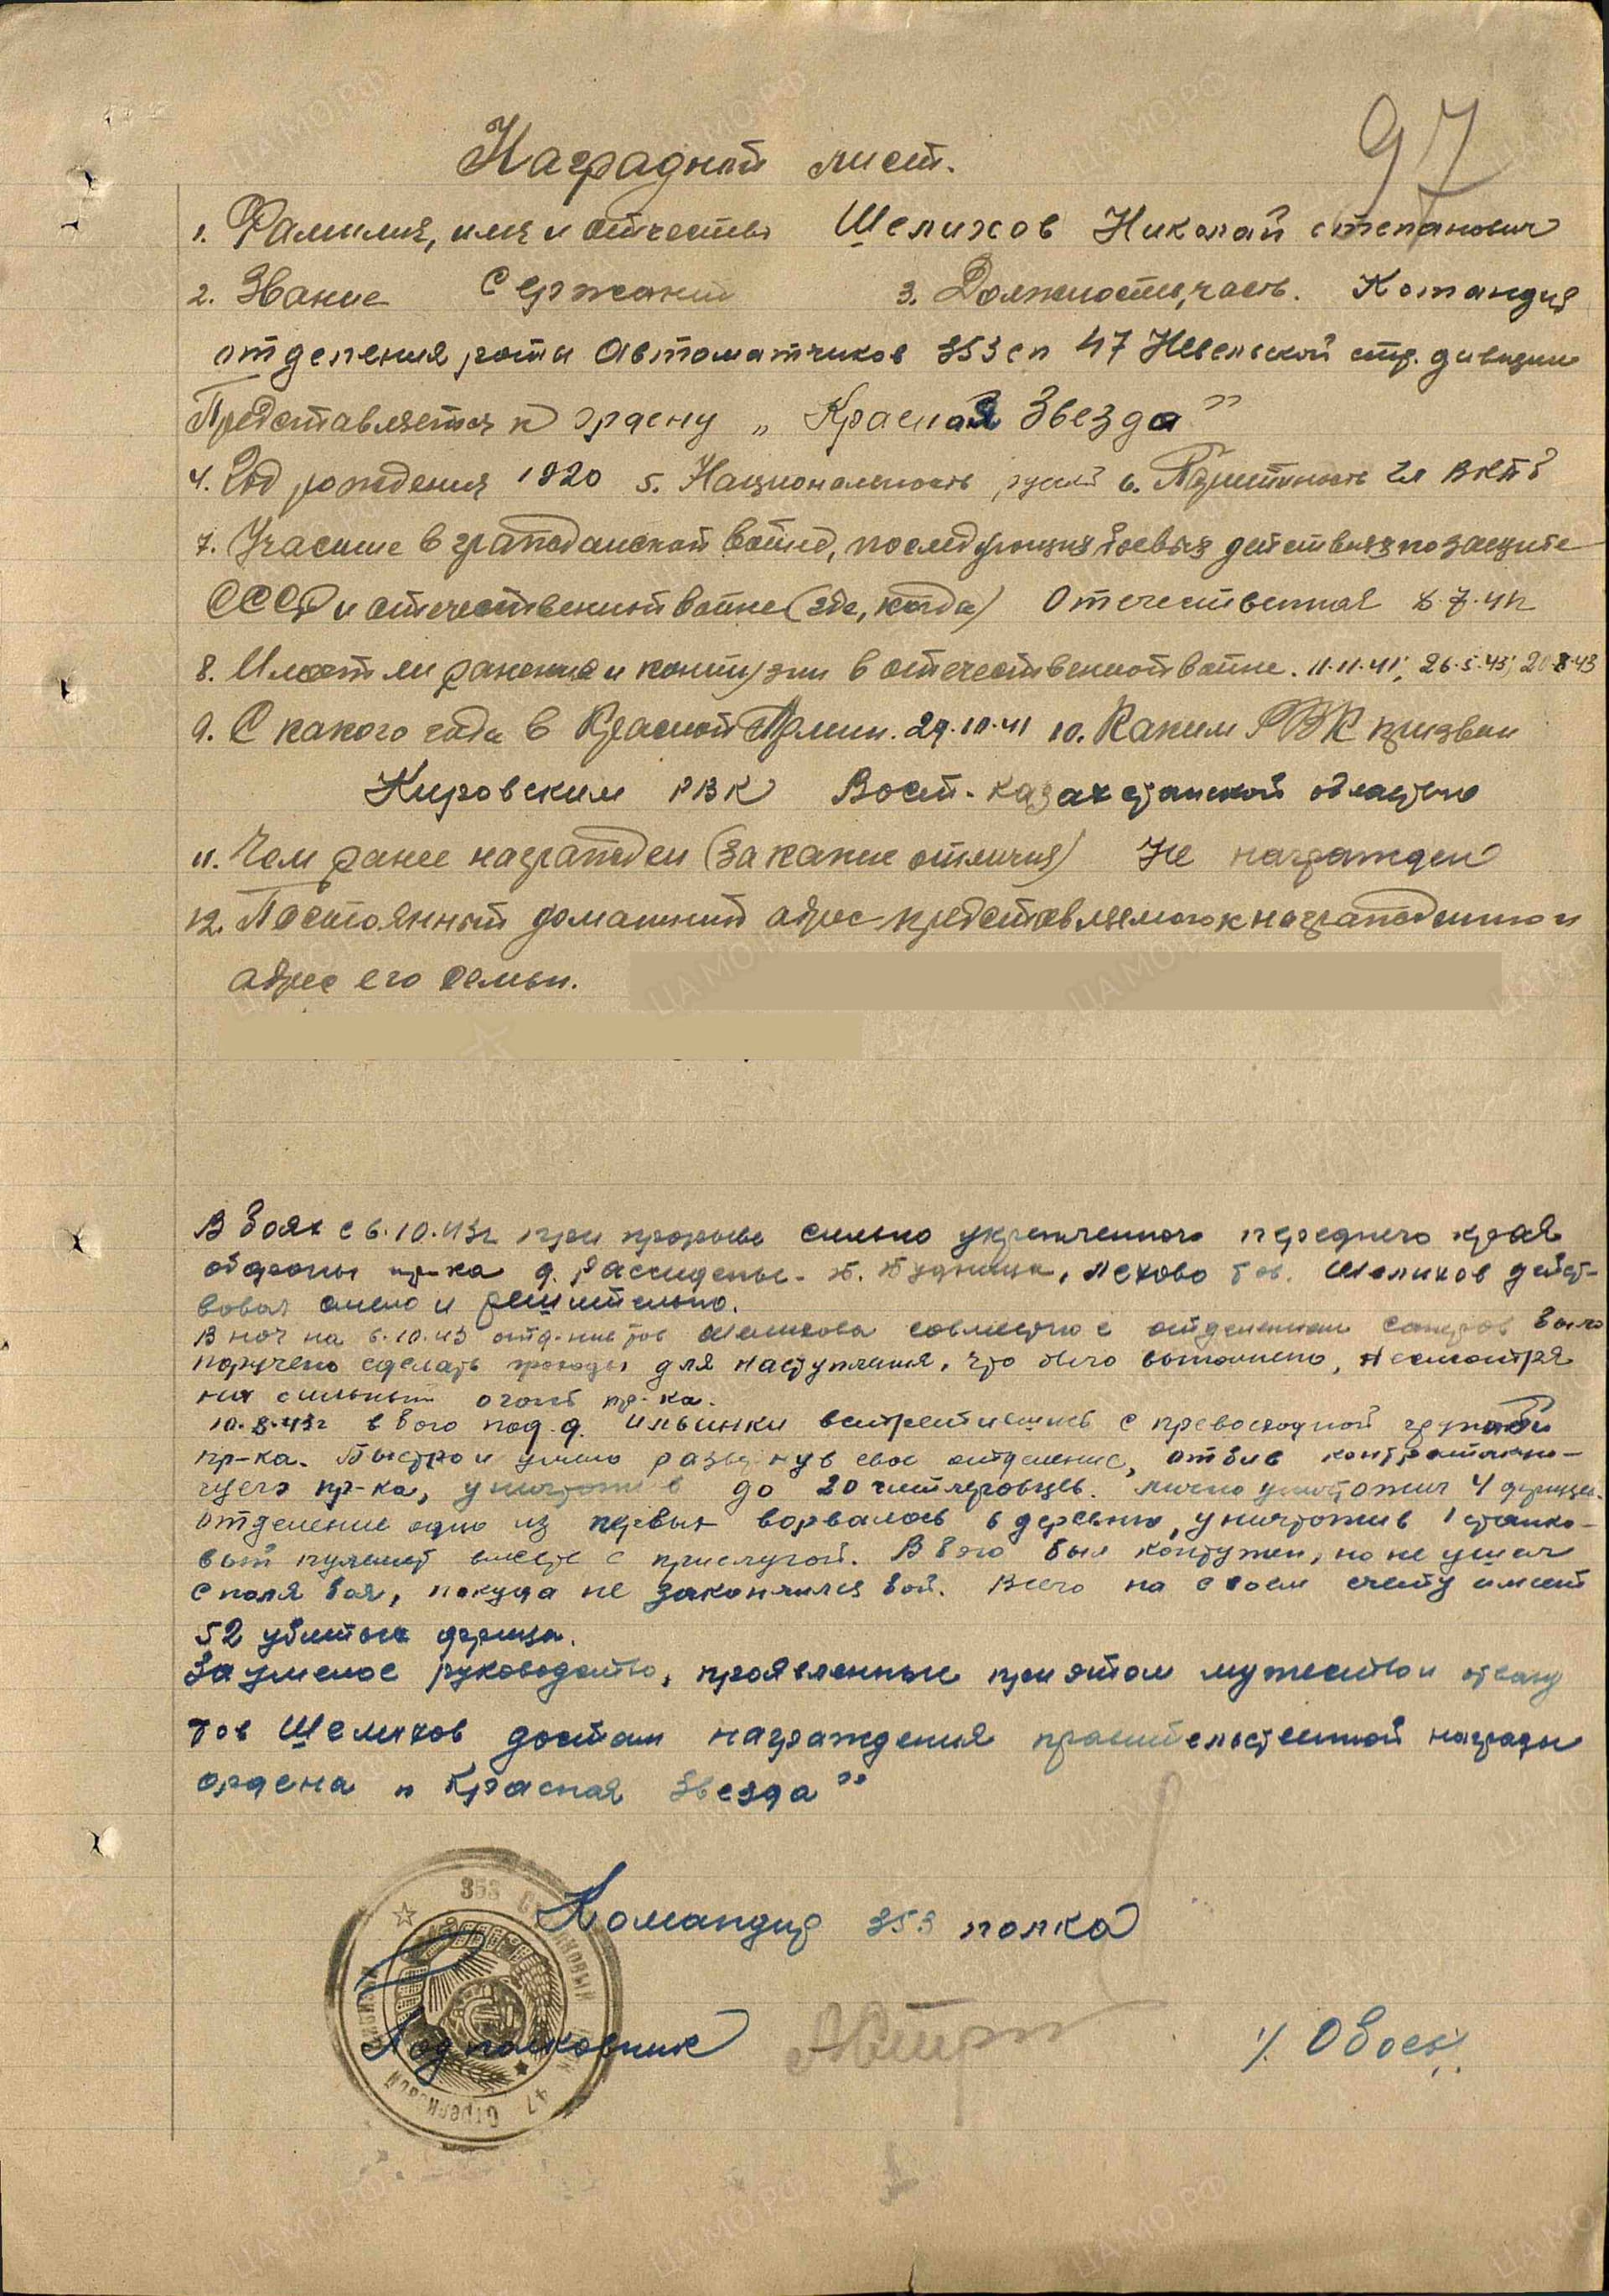 97
Наградной лист.
1. Фамилия, имя и отчество Шелихов Николай степанович
2. Звание Сержант 3. Должность, часть. Командир
отделения роты автоматчиков 353 сп 47 Невельской стр. дивизии
Представляется к ордену „Красная Звезда"
4. Год рождения 1920 5. Национальность русский 6. Партийность чл ВКПб
7. Участие в гражданской войне, последующих боевых действиях по защите
СССР и отечественной войне (где, когда) Отечественная
8. Имеет ли ранения и контузии в отечественной войне. 11.11.41; 26.5.43; 20.8.43
9. С какого года в Красной Армии. 29.10.41 10. Каким РВК призван
Кировским РВК Вост-казахстанской областью
11. Чем ранее награжден (за какие отличия) Не награжден
12. Постоянный домашний адрес представляемого к награждению и
адрес его семьи.
В боях с 6.10.43г при прорыве сильно укрепленного переднего края
обороны пр-ка д. Лехово тов. Шелихов дейст-
вовал смело и решительно.
В ноч на 6.10.43 отд-нию тов Шелихова совместно с отделением саперов было
поручено сделать проходы для наступления, что было выполнено, несмотря
на сильный огонь пр-ка.
10.8.43г в бою под д. Ильинки встретившись с превосходной группой
пр-ка. Быстро и умело развернув свое отделение, отбив контратакую-
щего пр-ка, уничтожив до 20 гитлеровцев. лично уничтожил 4 фрица.
отделение одно из первых ворвалось в деревню, уничтожив 1 станко-
вый пулемет вместе с прислугой. В бою был контужен, но не ушел
с поля боя, покуда не закончился бой. Всего на своем счету имеет
52 убитых фрица.
За умелое руководство, проявленные при этом мужество и отвагу
тов Шелихов достоин награждения правительственной награды
ордена „Красная Звезда"
Командир 353 полка
Подполковник
353 Стрелковый
47 Стрелковой дивизии
ЦАМО.РФ